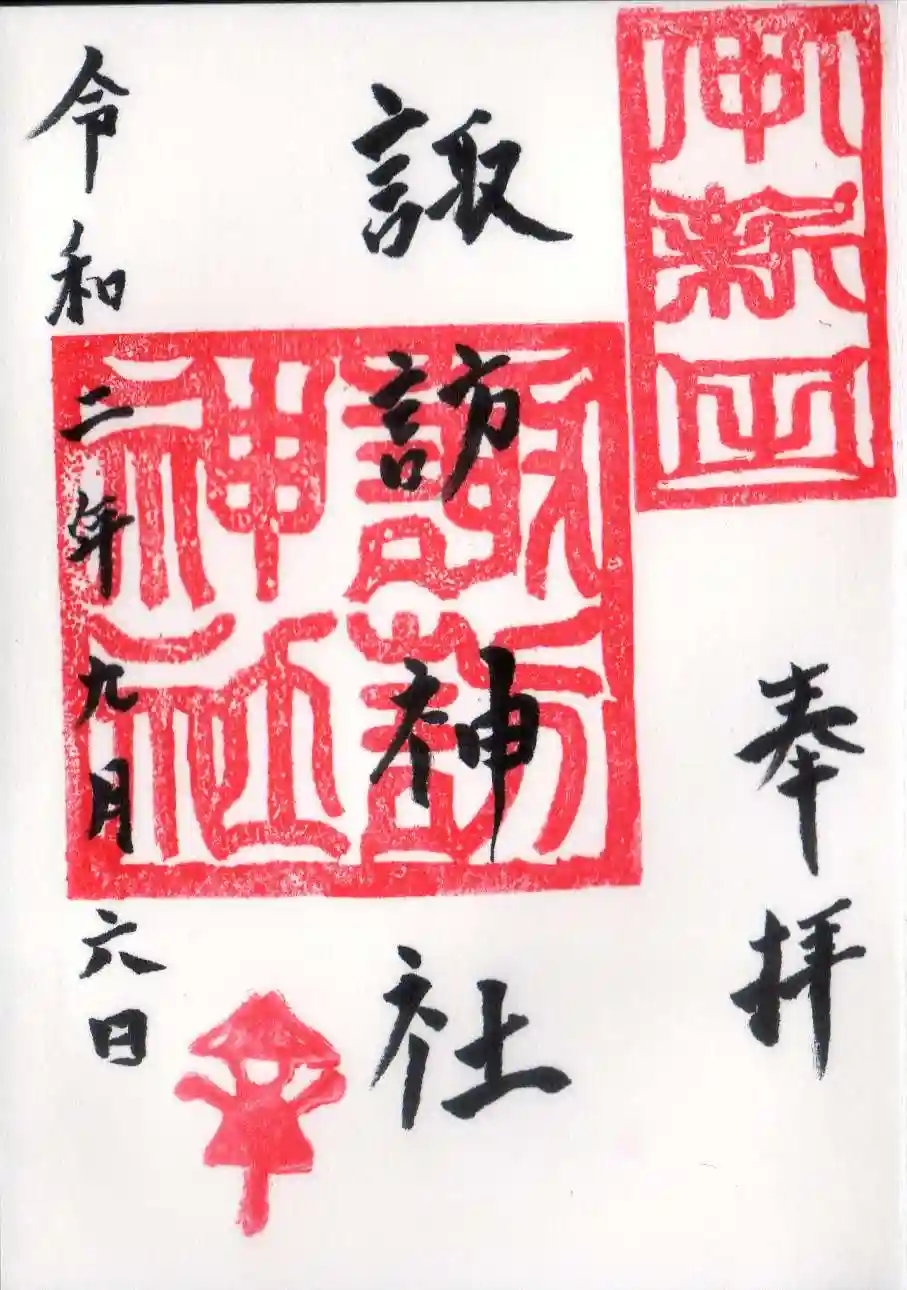 奉拝
諏訪神社
諏訪
神社
令和二年九月六日